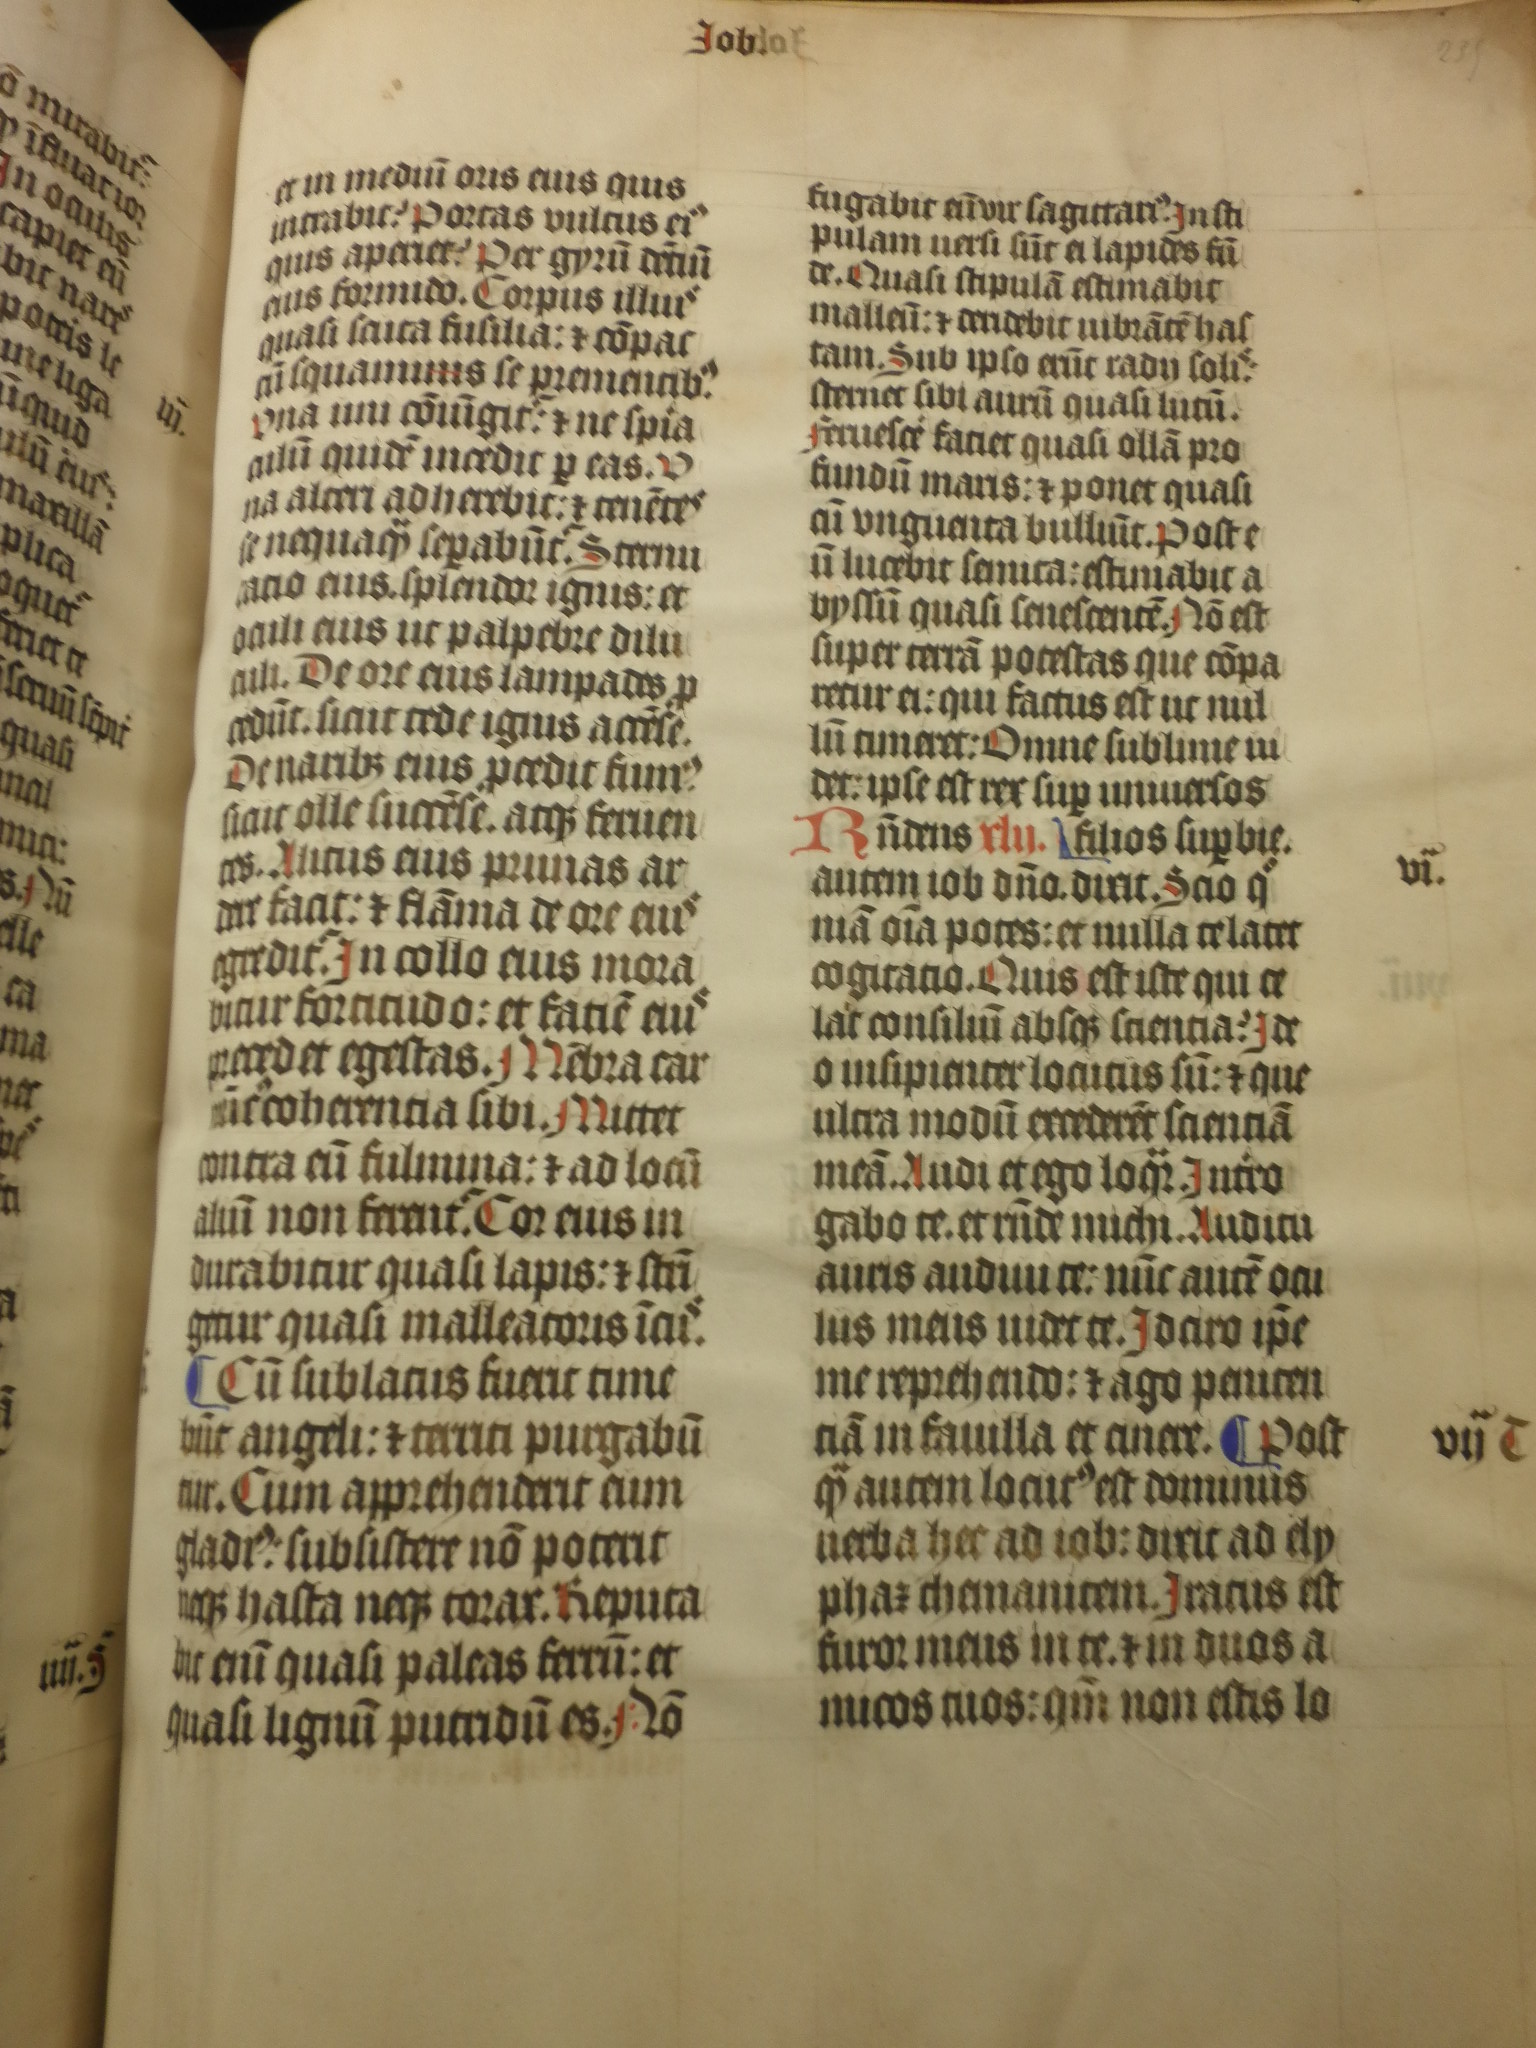 Iob
235
et in mediū oris eius quis
intrabit? Portas vultus ei9
quis aperiet? Per gyrū dētiū
eius formido. Corpus illius
quasi scuta fusilia: ⁊ cōpac
tū squamis se prementib9.
Vna uni cōiūgit᷑: ⁊ ne spira
culū quidē incedit ꝑ eas. V
na alteri adherebit: ⁊ tenētes
se nequaqȝ seꝑabūt᷑. Sternu
tatio eius. splendor ignis: et
oculi eius ut palpebre dilu
culi. De ore eius lampades ꝓ
cedūt. sicut tede ignis accēse.
De naribȝ eius ꝓcedit fum9
sicut olle succēse. atqȝ feruen
tes. Alitus eius prunas ar
dere facit: ⁊ flāma de ore eius
egredit᷑. In collo eius mora
bitur fortitudo: et faciē eius
precedet egestas. Mēbra car
niū coherentia sibi. Mittet
contra eū fulmina: ⁊ ad locū
aliū non ferent᷑. Cor eius in
durabitur quasi lapis: ⁊ strī
getur quasi malleatoris īcus.
Cū sublatus fuerit time
būt angeli: ⁊ territi purgabū
tur. Cum apprehenderit eum
gladi9: subsistere nō poterit
neqȝ hasta neqȝ torax. Reputa
bit enī quasi paleas ferrū: et
quasi lignū putridū es. Nō
fugabit eū vir sagittari9. In sti
pulam uersi sūt ei lapides fū
de. Quasi stipulā estimabit
malleū: ⁊ deridebit uibrātē has
tam. Sub ipso erūt radij solis:
sternet sibi aurū quasi lutū.
Feruescē faciet quasi ollā pro
fundū maris: ⁊ ponet quasi
cū vnguenta bulliūt. Post e
ū lucebit semita: estimabit a
byssū quasi senescentē. Nō est
super terrā potestas que cōpa
retur ei: qui factus est ut nul
lū timeret: Omne sublime ui
det: ipse est rex suꝑ uniuersos
Rn̄dens xlij. filios suꝑbie.
autem iob dn̄o. dixit. Scio q
niā oīa potes: et nulla te latet
cogitatio. Quis est iste qui ce
lat consiliū absqȝ scientia? Ide
o insipienter locutus sū: ⁊ que
ultra modū excederēt scientiā
meā. Audi et ego loqr. Interro
gabo te. et rn̄de michi. Auditu
auris audiui te: nūc autē ocu
lus meus uidet te. Idcirco ip̄e
me reprehendo: ⁊ ago peniten
tiā in fauilla et cinere. Post
qȝ autem locut9 est dominus
uerba hec ad iob: dixit ad ely
phaz themanitem. Iratus est
furor meus in te. ⁊ in duos a
micos tuos: qm̄ non estis lo
vi.
vij T